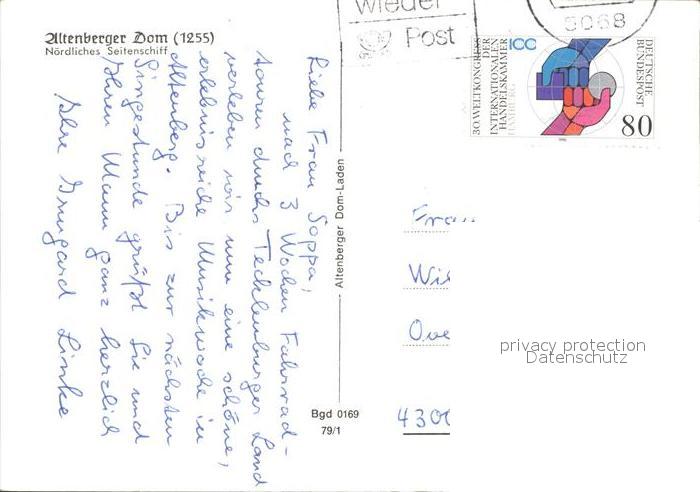 Altenberger Dom (1255)
Nördliches Seitenschiff
Liebe Frau Soppa,
nach 3 Wochen Fahrrad-
touren durchs Tecklenburger Land
verleben wir nun eine schöne,
erlebnisreiche Musikwoche in
Altenberg. Bis zur nächsten
Singestunde grüßt Sie und
Ihren Mann ganz herzlich
Ihre Irmgard Linke
Altenberger Dom-Laden
Bgd 0169
79/1
wieder
Post
5068
30.WELTKONGRESS
DER
INTERNATIONALEN
HANDELSKAMMER
HAMBURG
ICC
DEUTSCHE
BUNDESPOST
80
1990
Frau
Wi
Ove
430
privacy protection
Datenschutz